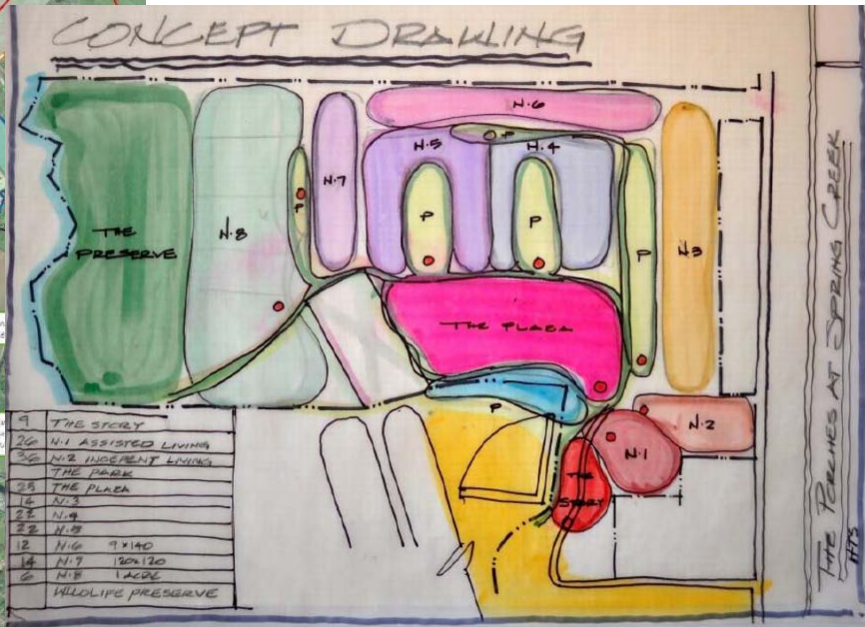 CONCEPT DRAWING
N.6
N.5
P
N.4
N.7
P
N.8
THE
PRESERVE
P
P
P
N3
THE PLAZA
P
N.2
N.1
THE
STORY
9 THE STORY
26 N.1 ASSISTED LIVING
36 N.2 INDEPENT LIVING
THE PARK
25 THE PLAZA
14 N.3
22 N.4
22 N.5
12 N.6 9x140
14 N.7 120x120
6 N.8 1 ACRE
WILDLIFE PRESERVE
THE PORCHES AT SPRING CREEK
NTS